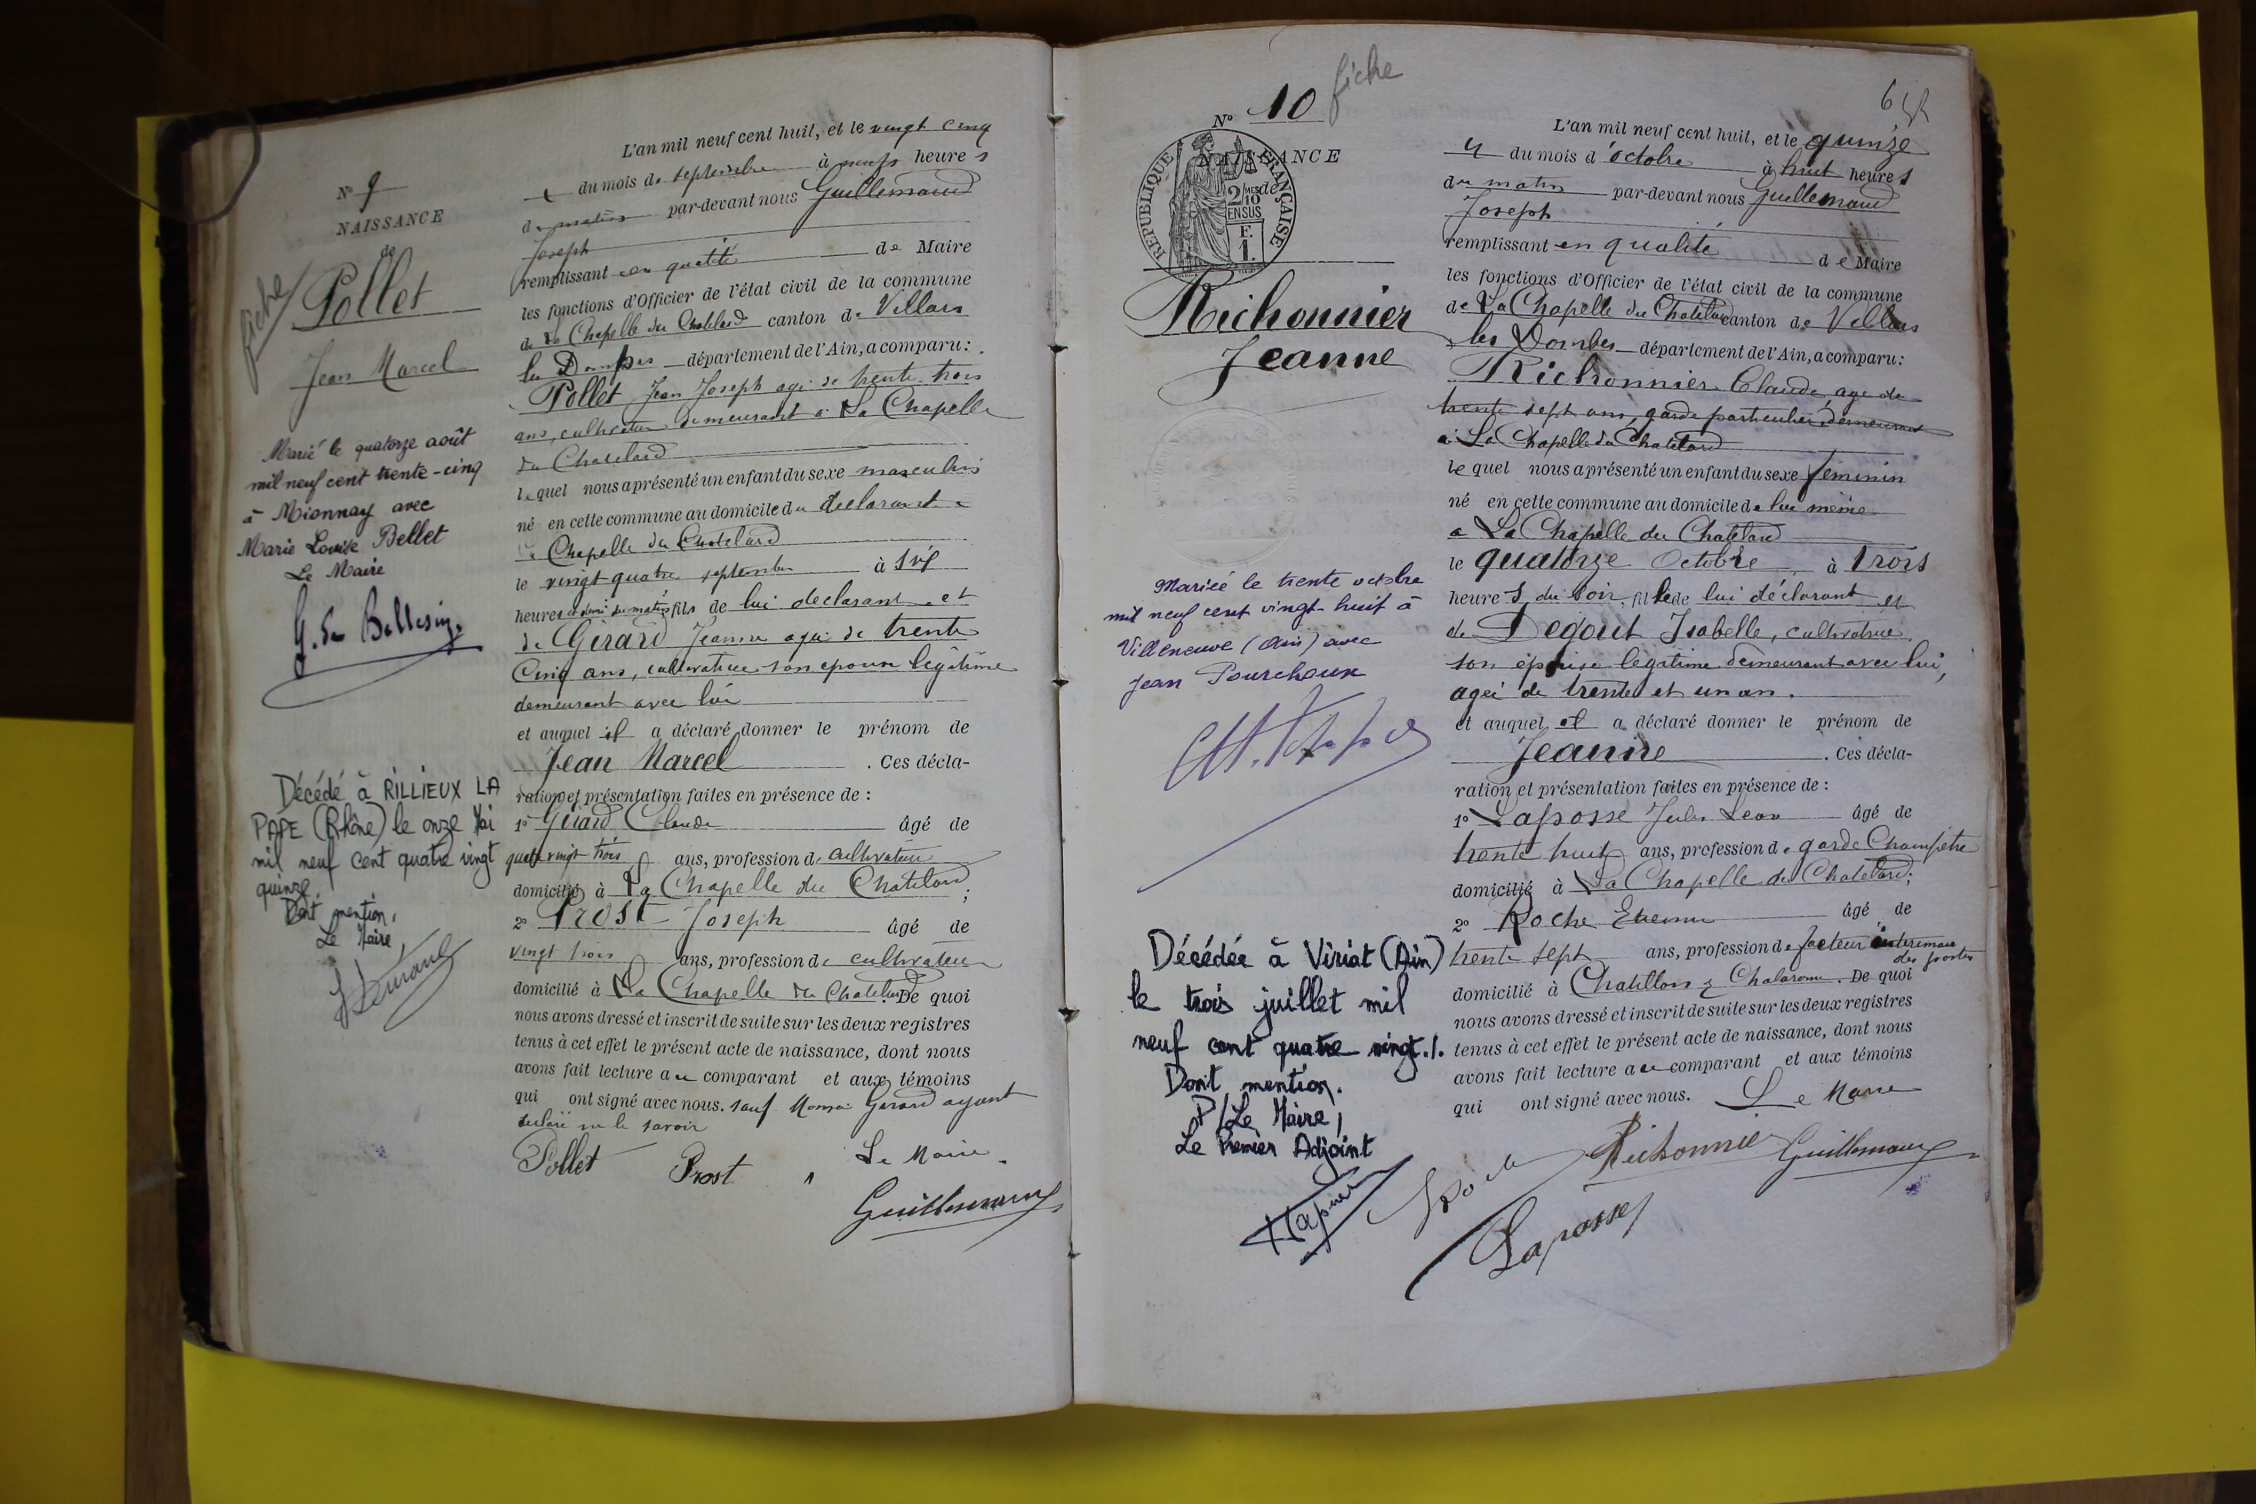 N° 9
NAISSANCE
de
fiche
Pollet
Jean Marcel
Marié le quatorze août
mil neuf cent trente-cinq
à Mionnay avec
Marie Louise Bellet
Le Maire
Décédé à RILLIEUX LA
PAPE (Rhône) le onze Mai
mil neuf cent quatre vingt
quinze.
Dont mention,
Le Maire,
L'an mil neuf cent huit, et le vingt cinq
du mois de septembre à neuf heures
du matin par-devant nous Guillemaud
Joseph
remplissant en qualité de Maire
les fonctions d'Officier de l'état civil de la commune
de La Chapelle du Chatelard canton de Villars
les Dombes département de l'Ain, a comparu :
Pollet Jean Joseph agé de trente trois
ans, cultivateur demeurant à La Chapelle
du Chatelard
lequel nous a présenté un enfant du sexe masculin
né en cette commune au domicile du declarant
La Chapelle du Chatelard
le vingt quatre septembre à six
heures et demi du matin fils de lui declarant et
de Girard Jeanne agée de trente
cinq ans, cultivatrice son epouse legitime
demeurant avec lui
et auquel il a déclaré donner le prénom de
Jean Marcel . Ces décla-
ration et présentation faites en présence de :
1° Girard Claude âgé de
quatre vingt trois ans, profession de cultivateur
domicilié à La Chapelle du Chatelard ;
2° Prost Joseph âgé de
vingt trois ans, profession de cultivateur
domicilié à La Chapelle du Chatelard De quoi
nous avons dressé et inscrit de suite sur les deux registres
tenus à cet effet le présent acte de naissance, dont nous
avons fait lecture au comparant et aux témoins
qui ont signé avec nous. sauf Girard ayant
declaré ne le savoir
Pollet Prost Le Maire
Guillemaud
N° 10 fiche
NAISSANCE
de
RÉPUBLIQUE FRANÇAISE
2/10
EN SUS
F.
1.
Richonnier
Jeanne
Mariée le trente octobre
mil neuf cent vingt-huit à
Villeneuve (Ain) avec
Jean Pourchoux
Décédée à Viriat (Ain)
le trois juillet mil
neuf cent quatre vingt./.
Dont mention.
P/Le Maire,
Le Premier Adjoint
L'an mil neuf cent huit, et le quinze
du mois d'octobre à huit heures
du matin par-devant nous Guillemaud
Joseph
remplissant en qualité de Maire
les fonctions d'Officier de l'état civil de la commune
de La Chapelle du Chatelard canton de Villars
les Dombes département de l'Ain, a comparu :
Richonnier Claude, age de
trente sept ans, garde particulier, demeurant
à La Chapelle du Chatelard
lequel nous a présenté un enfant du sexe feminin
né en cette commune au domicile de lui même
a La Chapelle du Chatelard
le quatorze Octobre à trois
heures du soir, fille de lui déclarant et
de Degout Isabelle, cultivatrice
son épouse legitime demeurant avec lui,
agée de trente et un an.
et auquel il a déclaré donner le prénom de
Jeanne . Ces décla-
ration et présentation faites en présence de :
1° Laposse Jules Leon âgé de
trente huit ans, profession de garde Champêtre
domicilié à La Chapelle du Chatelard ;
2° Roche Etienne âgé de
trente sept ans, profession de facteur interimaire
des postes
domicilié à Chatillon s Chalaronne. De quoi
nous avons dressé et inscrit de suite sur les deux registres
tenus à cet effet le présent acte de naissance, dont nous
avons fait lecture au comparant et aux témoins
qui ont signé avec nous. Le Maire
Roche Richonnier Guillemaud
Laposse